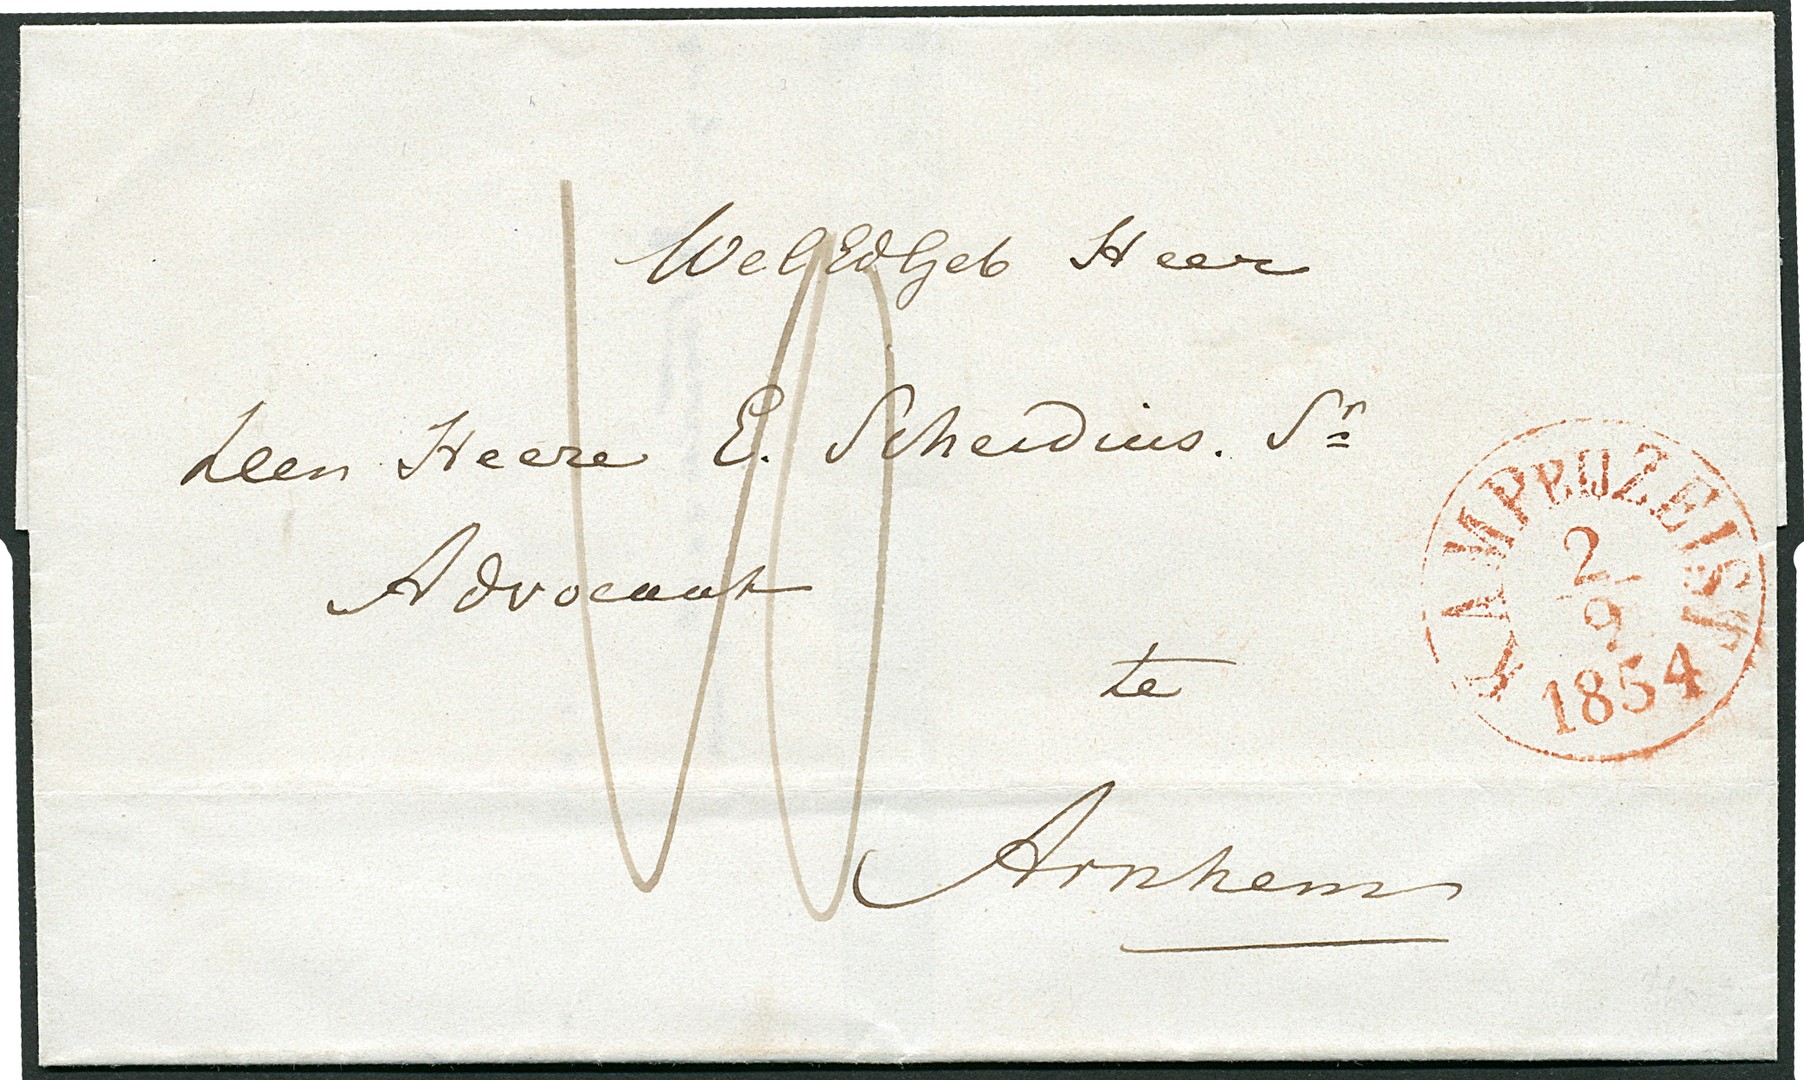 WelEdGeb Heer
den Heere E. Scheidius. Sr
Advocaat
te
Arnhem
10
KAMP BIJ ZEIST
2/9
1854